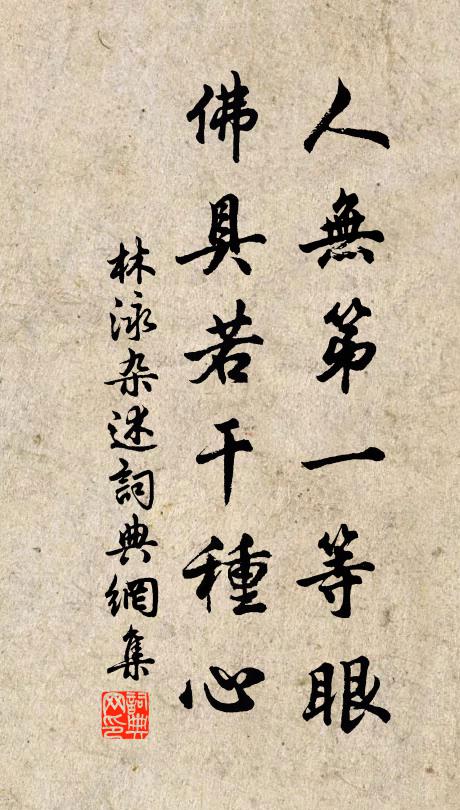 人無第一等眼
佛具若干種心
林泳杂述詞典網集
詞典
网印